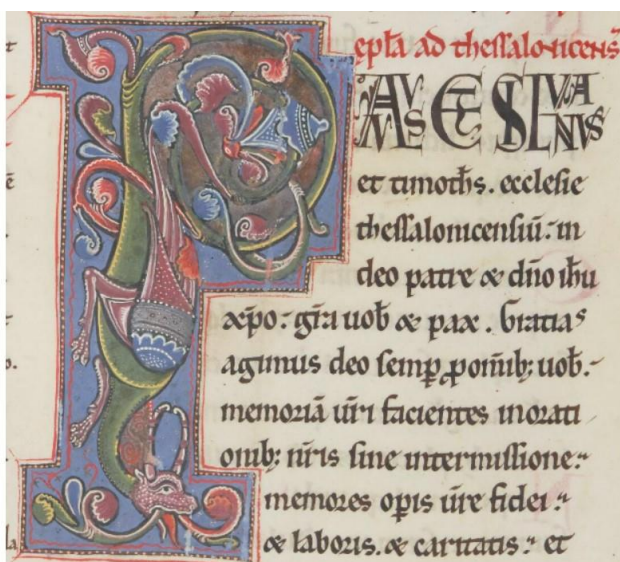 P
epl̄a ad thessalonicens̄
AVLVS ET SILVANVS
et timoth̄s. ecclesie
thessalonicensiū. in
deo patre & dn̄o ih̄u
xp̄o. gr̄a uob̄ & pax. Gratias
agimus deo semp̄ p̱ om̄ib; uob̄.
memoriā ur̄i facientes in orati
onib; nr̄is sine intermissione.
memores op̱is ur̄e fidei.
& laboris. & caritatis. et